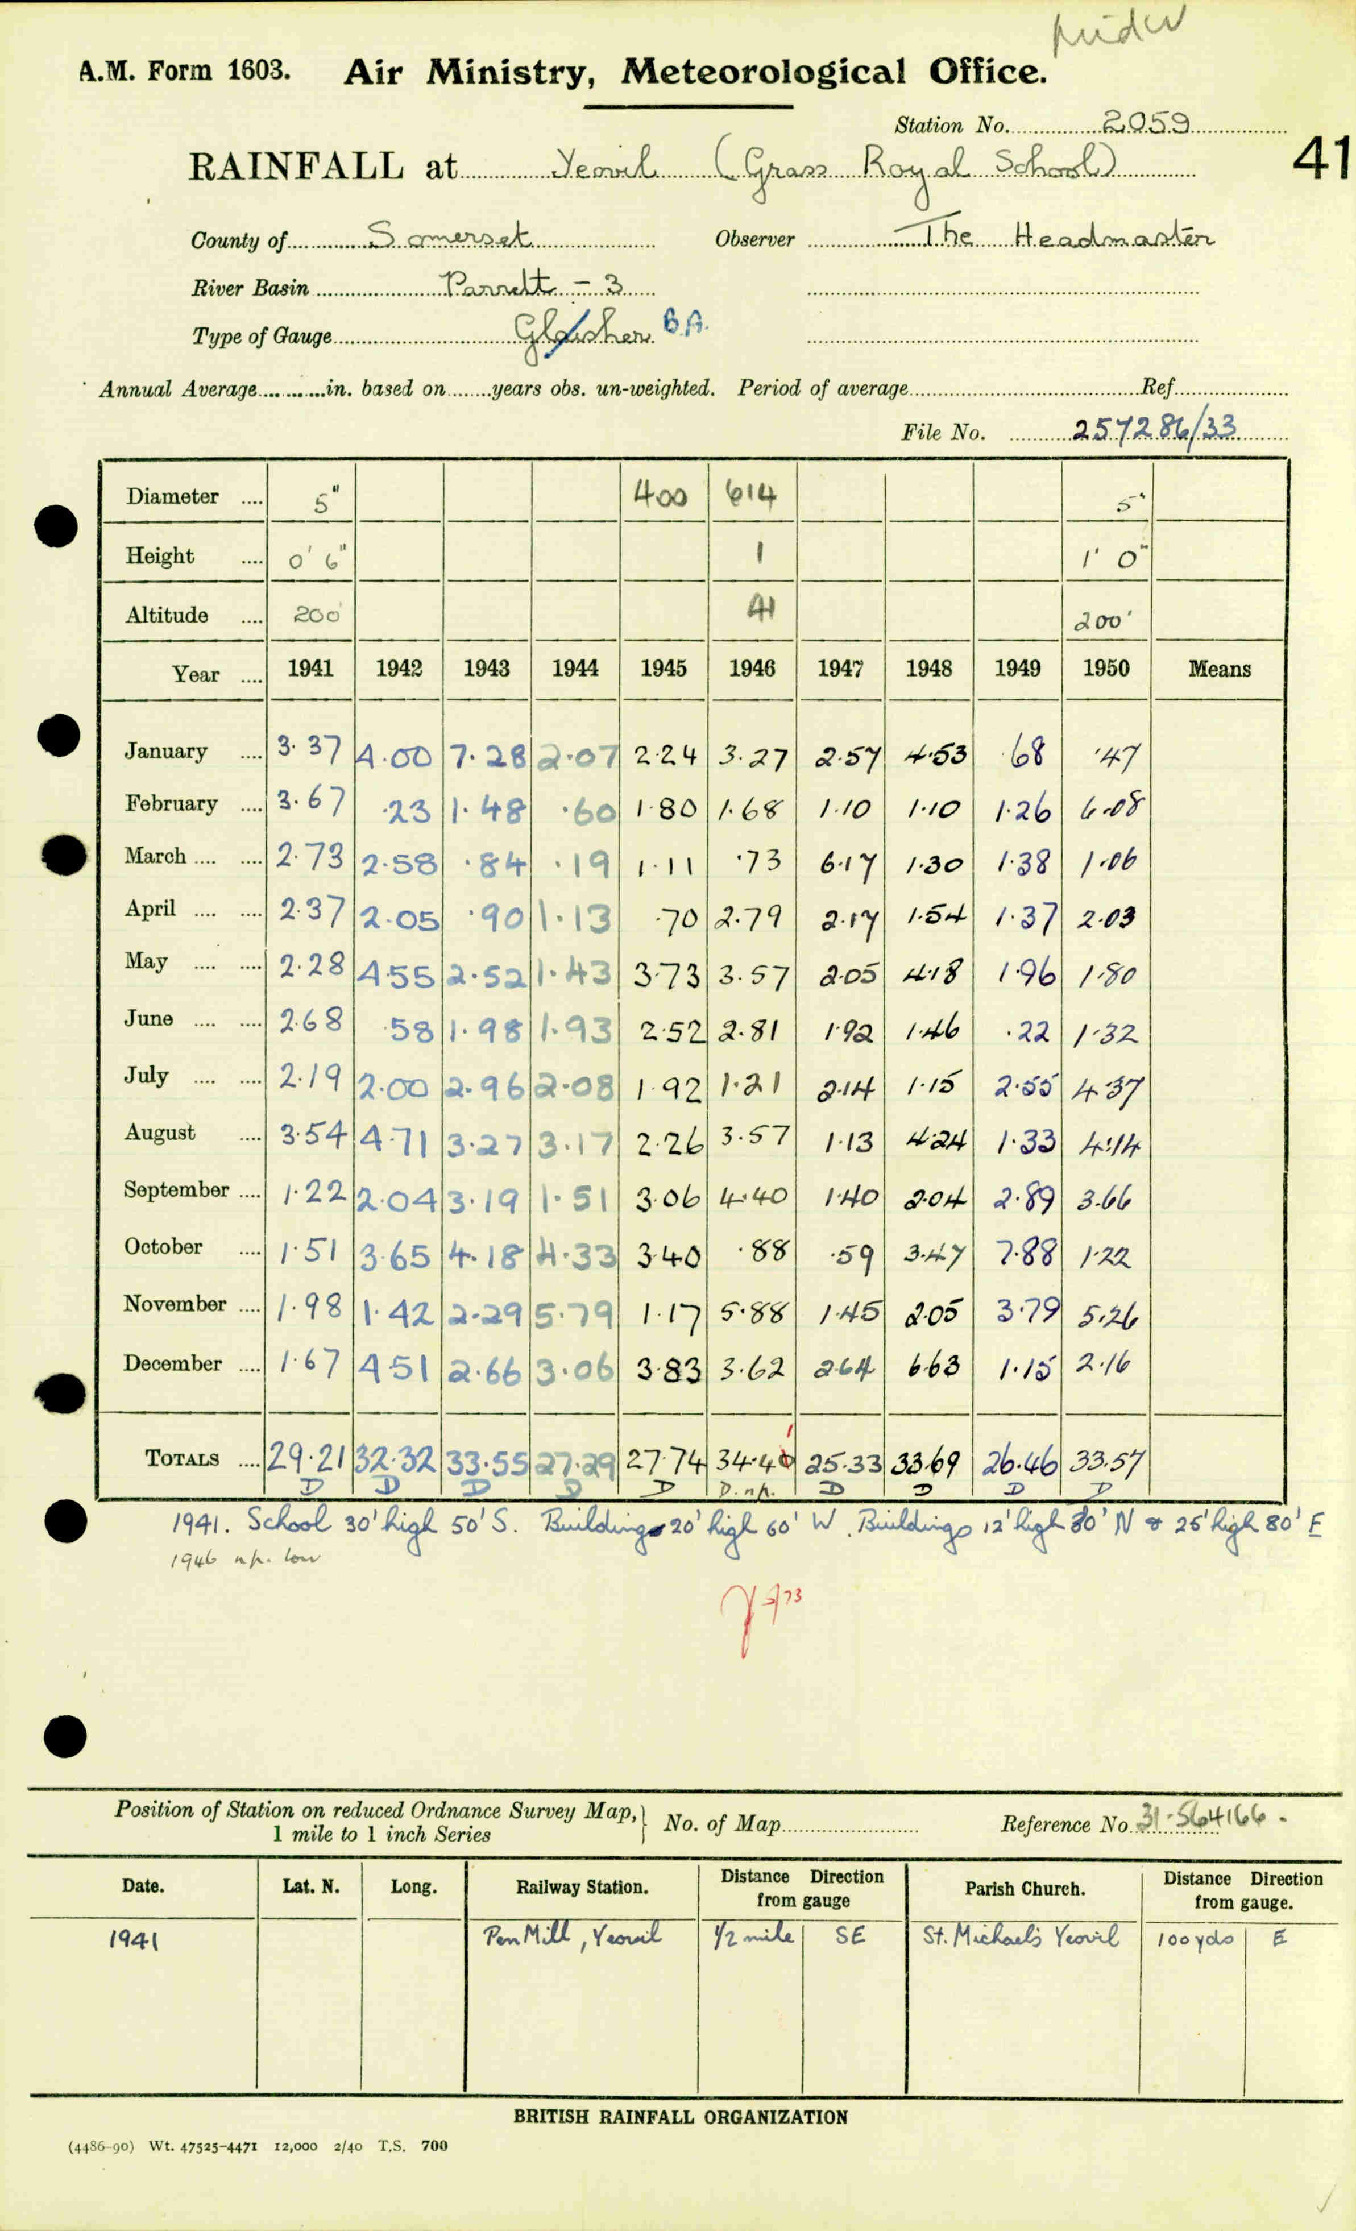 A.M. Form 1603. Air Ministry, Meteorological Office.
Station No. 2059
RAINFALL at Yeovil (Grass Royal School) 41
County of Somerset Observer The Headmaster
River Basin Parrett - 3
Type of Gauge Glaisher B.A.
Annual Average in. based on years obs. un-weighted. Period of average Ref
File No. 257286/33
Diameter 5" 400 614 5"
Height 0' 6" 1 1' 0"
Altitude 200' 41 200'
Year 1941 1942 1943 1944 1945 1946 1947 1948 1949 1950 Means
January 3.37 4.00 7.28 2.07 2.24 3.27 2.57 4.53 .68 .47
February 3.67 .23 1.48 .60 1.80 1.68 1.10 1.10 1.26 6.08
March 2.73 2.58 .84 .19 1.11 .73 6.17 1.30 1.38 1.06
April 2.37 2.05 .90 1.13 .70 2.79 2.17 1.54 1.37 2.03
May 2.28 4.55 2.52 1.43 3.73 3.57 2.05 4.18 1.96 1.80
June 2.68 .58 1.98 1.93 2.52 2.81 1.92 1.46 .22 1.32
July 2.19 2.00 2.96 2.08 1.92 1.21 2.14 1.15 2.55 4.37
August 3.54 4.71 3.27 3.17 2.26 3.57 1.13 4.24 1.33 4.14
September 1.22 2.04 3.19 1.51 3.06 4.40 1.40 2.04 2.89 3.66
October 1.51 3.65 4.18 4.33 3.40 .88 .59 3.47 7.88 1.22
November 1.98 1.42 2.29 5.79 1.17 5.88 1.45 2.05 3.79 5.26
December 1.67 4.51 2.66 3.06 3.83 3.62 2.64 6.63 1.15 2.16
TOTALS 29.21 32.32 33.55 27.29 27.74 34.41 25.33 33.69 26.46 33.57
D D D D D D. n.p. D D D D
1941. School 30' high 50' S. Buildings 20' high 60' W. Buildings 12' high 80' N & 25' high 80' E
1946 n.p. low
5/73
Position of Station on reduced Ordnance Survey Map, No. of Map Reference No 31.564166.
1 mile to 1 inch Series
Date. Lat. N. Long. Railway Station. Distance Direction from gauge Parish Church. Distance Direction from gauge.
1941 Pen Mill, Yeovil 1/2 mile SE St. Michael's Yeovil 100 yds E
BRITISH RAINFALL ORGANIZATION
(4486-90) Wt. 47525-4471 12,000 2/40 T.S. 700